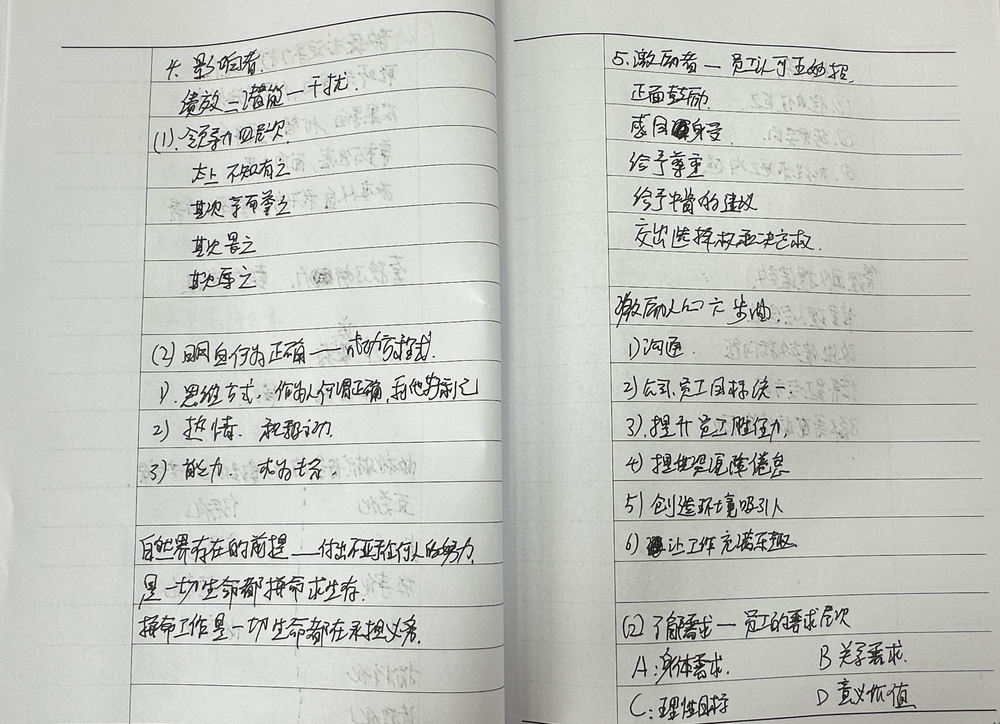 4. 影响者.
绩效=潜能—干扰.
(1).领导力四层次.
太上 不知有之
其次 亲而誉之
其次 畏之
其次 辱之
(2) 明白何为正确——成功方程式.
1). 思维方式. 作为人何谓正确,利他利己
2) 热情. 积极主动.
3) 能力.
自然界存在的前提——付出不亚于任何人的努力,
是一切生命都拼命求生存.
拼命工作是一切生命都在承担义务.
5.激励者—员工认可五妙招.
正面鼓励.
感同身受
给予尊重
给予中肯的建议
交出选择权和决定权.
激励人心六步曲.
1)沟通.
2)公司,员工目标统一.
3).提升员工胜任力.
4)
5)创造环境吸引人
6)让工作充满乐趣
(2) 了解需求—员工的需求层次
A:身体需求. B 关系需求.
C:理性目标 D 意义价值